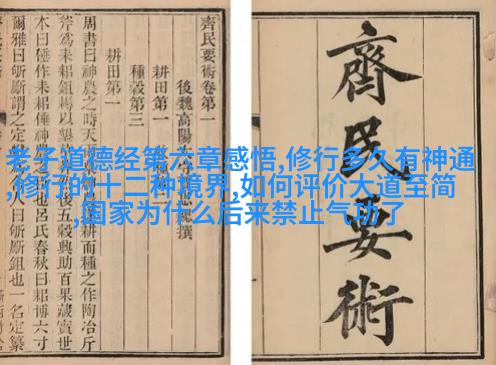 老子道德经第六章感悟,修行多久有神通
,修行的十二种境界,如何评价大道至简
,国家为什么后来禁止气功了
齊民要術
齊民要術卷第一
後魏高陽 撰
耕田第一
種穀第三
耕田第一
周書曰神農之時天雨 耕而種之作陶冶斤
斧爲耒耜鉏耨以墾 後五穀興助百果藏實世
本曰倕作耒耜倕神農 也呂氏春秋曰耜博六寸
爾雅曰斪斸謂之定 人曰斪斸鉏也一名定纂